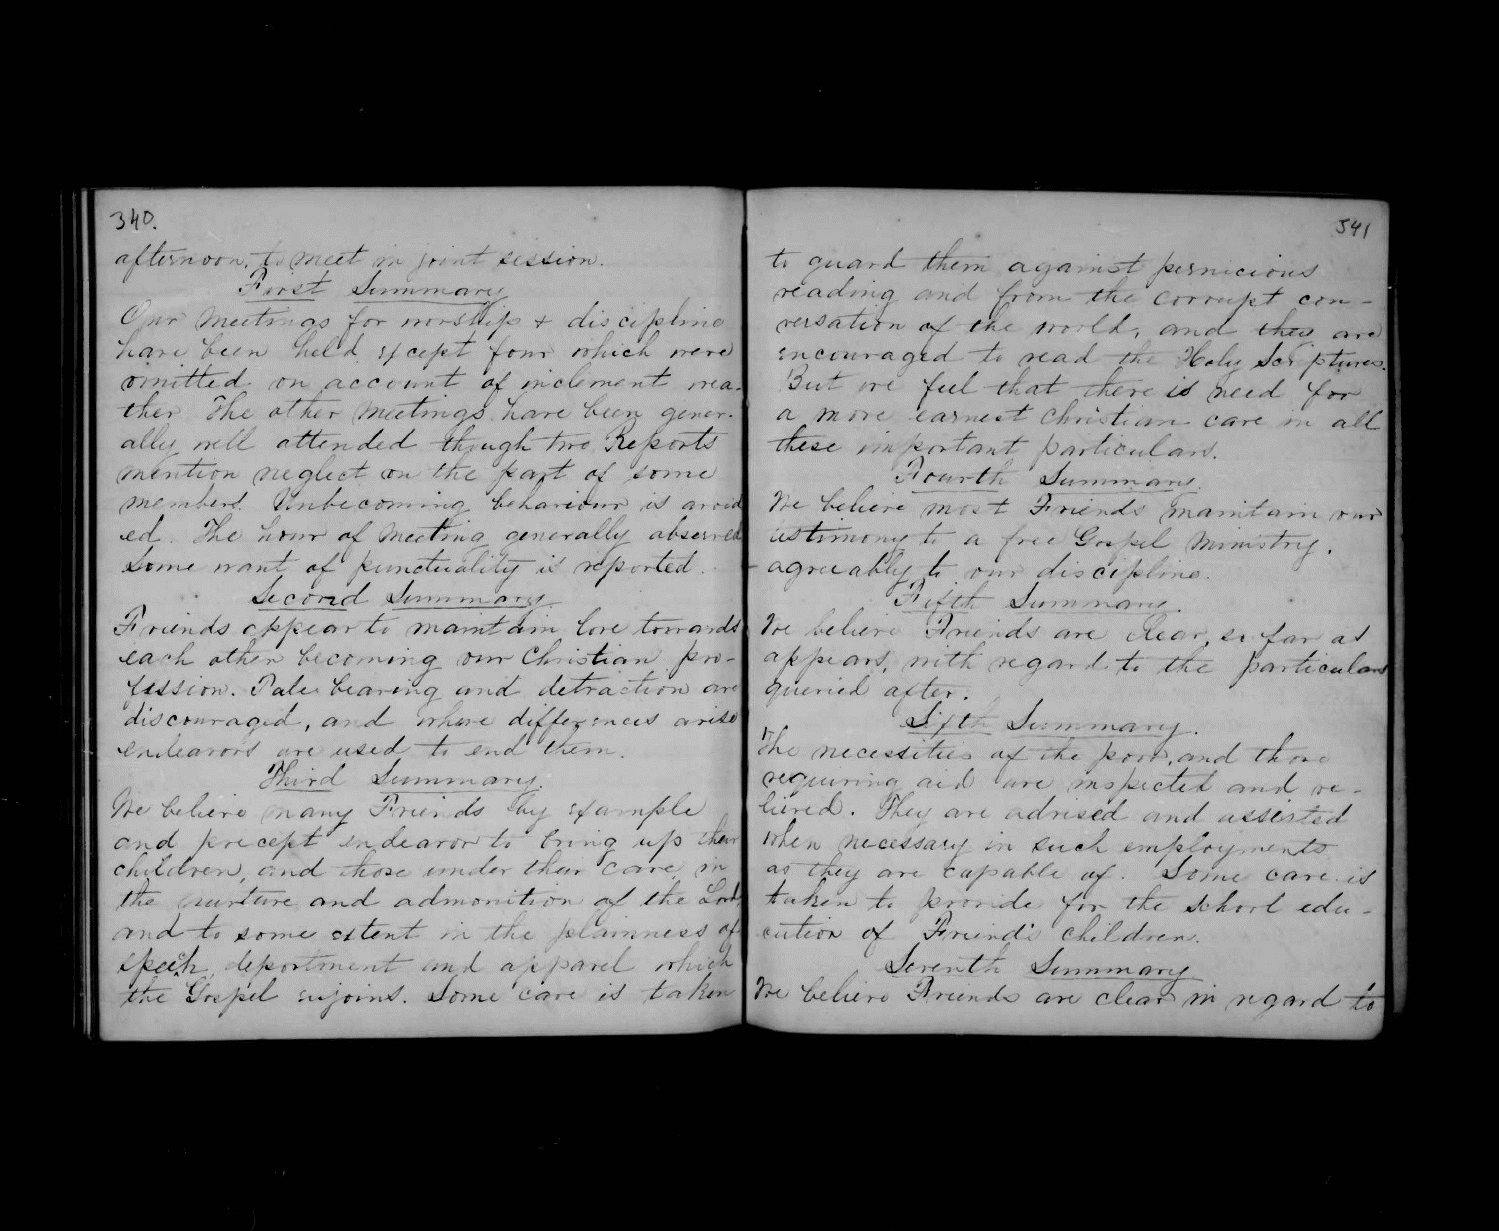 340.
afternoon, to meet in joint session.
First Summary
Our Meetings for worship & discipline
have been held except four which were
omitted on account of inclement wea-
ther The other Meetings have been gener-
ally well attended though two Reports
mention neglect on the part of some
members. Unbecoming behaviour is avoid
ed. The hour of Meeting generally observed
Some want of punctuality is reported.
Second Summary.
Friends appear to maintain love towards
each other becoming our Christian pro-
fession. Tale bearing and detraction are
discouraged, and where differences arise
endeavors are used to end them.
Third Summary.
We believe many Friends by example
and precept endeavor to bring up their
children, and those under their care, in
the nurture and admonition of the Lord,
and to some extent in the plainness of
speech, deportment and apparel which
the Gospel enjoins. Some care is taken
341
to guard them against pernicious
reading and from the corrupt con-
versation of the world, and they are
encouraged to read the Holy Scriptures.
But we feel that there is need for
a more earnest Christian care in all
these important particulars.
Fourth Summary.
We believe most Friends maintain our
testimony to a free Gospel Ministry.
agreeably to our discipline.
Fifth Summary.
We believe Friends are Clear, so far as
appears, with regard to the particulars
queried after.
Sixth Summary.
The necessities of the poor, and those
requiring aid are inspected and re-
lieved. They are advised and assisted
when necessary in such employments
as they are capable of. Some care is
taken to provide for the school edu-
cation of Friend's children.
Seventh Summary
We believe Friends are clear in regard to